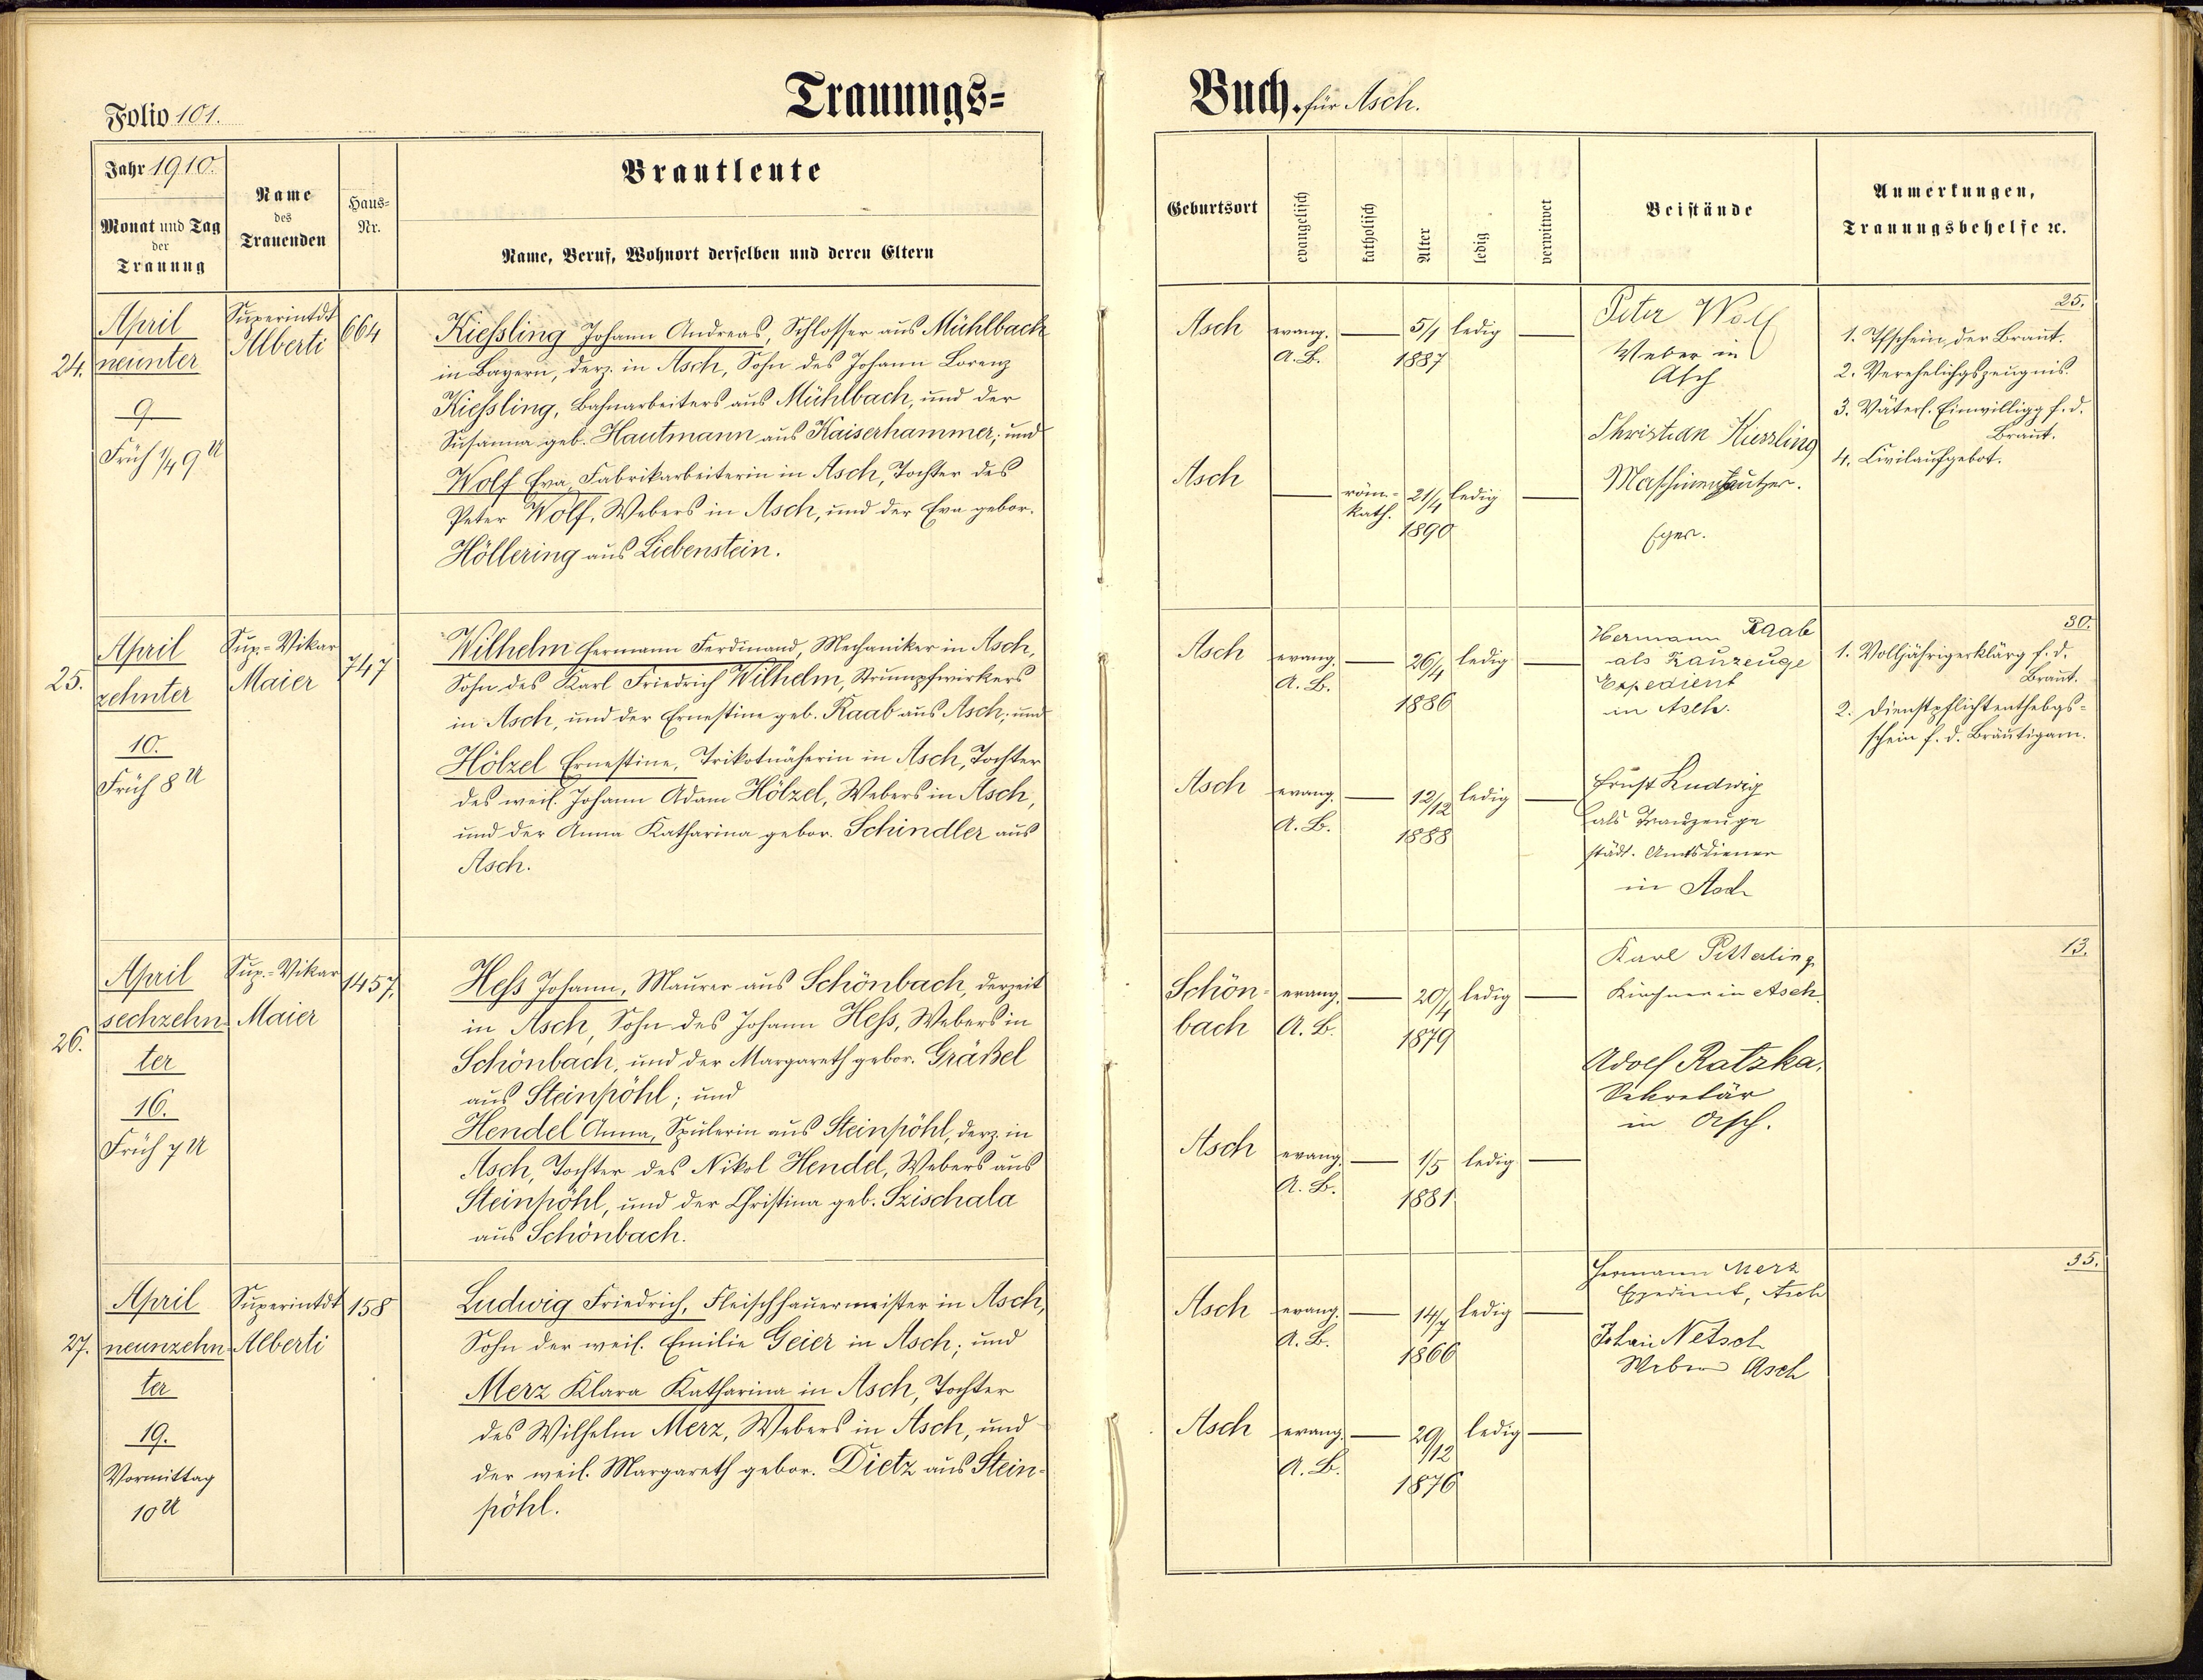 Trauungs=
Buch. für Asch.
Folio 101.
Jahr 1910.
Monat und Tag
der
Trauung
Name
des
Trauenden
Haus=
Nr.
Brautleute
Name, Beruf, Wohnort derselben und deren Eltern
Geburtsort
evangelisch
katholisch
Alter
ledig
verwitwet
Beistände
Anmerkungen,
Trauungsbehelfe ꝛc.
24.
April
neunter
9
Früh 1/49 U
Superintdt
Alberti
664
Kießling Johann Andreas, Schlosser aus Mühlbach
in Bayern, derz. in Asch, Sohn des Johann Lorenz
Kießling, Bahnarbeiters aus Mühlbach, und der
Susanna geb. Hautmann aus Kaiserhammer; und
Wolf Eva, Fabrikarbeiterin in Asch, Tochter des
Peter Wolf, Webers in Asch, und der Eva gebor.
Höllering aus Liebenstein.
Asch
evang.
A. B.
5/1
1887
ledig
Asch
röm.-
kath.
21/4
1890
ledig
Peter Wolf
Weber in
Asch
Christian Kiessling
Maschinenputzer.
Eger.
25.
1. Tfschein der Braut.
2. Verehelichgszeugnis.
3. Väterl. Einwilligg f. d.
Braut.
4. Civilaufgebot.
25.
April
zehnter
10.
Früh 8 U
Sup.-Vikar
Maier
747
Wilhelm Hermann Ferdinand, Mechaniker in Asch,
Sohn des Karl Friedrich Wilhelm, Strumpfwirkers
in Asch, und der Ernestine geb. Raab aus Asch; und
Hölzel Ernestine, Trikotnäherin in Asch, Tochter
des weil. Johann Adam Hölzel, Webers in Asch,
und der Anna Katharina gebor. Schindler aus
Asch.
Asch
evang.
A. B.
26/4
1886
ledig
Asch
evang.
A. B.
12/12
1888
ledig
Hermann Raab
als Trauzeuge
Expedient
in Asch.
Ernst Ludwig
als Trauzeuge
städt. Amtsdiener
in Asch
30.
1. Volljährigerklärg f. d.
Braut.
2. Dienstpflichtenthebgs-
schein f. d. Bräutigam.
26.
April
sechzehn
ter
16.
Früh 7 U
Sup.-Vikar
Maier
1457.
Heß Johann, Maurer aus Schönbach, derzeit
in Asch, Sohn des Johann Heß, Webers in
Schönbach, und der Margareth gebor. Gräßel
aus Steinpöhl; und
Hendel Anna, Spulerin aus Steinpöhl, derz. in
Asch, Tochter des Nikol Hendel, Webers aus
Steinpöhl, und der Christina geb. Szischala
aus Schönbach.
Schön-
bach
evang.
A. B.
20/4
1879
ledig
Asch
evang.
A. B.
1/5
1881
ledig
Karl
Kirchner in Asch
Adolf Ratzka.
Sekretär
in Asch.
13.
27.
April
neunzehn-
ter
19.
Vormittag
10 U
Superintdt
Alberti
158
Ludwig Friedrich, Fleischhauermeister in Asch,
Sohn der weil. Emilie Geier in Asch; und
Merz Klara Katharina in Asch, Tochter
des Wilhelm Merz, Webers in Asch, und
der weil. Margareth gebor. Dietz aus Stein-
pöhl.
Asch
evang.
A. B.
14/7
1866
ledig
Asch
evang.
A. B.
29/12
1876
ledig
Hermann Merz
Expedient, Asch
Johan Netsch
Weber Asch
35.